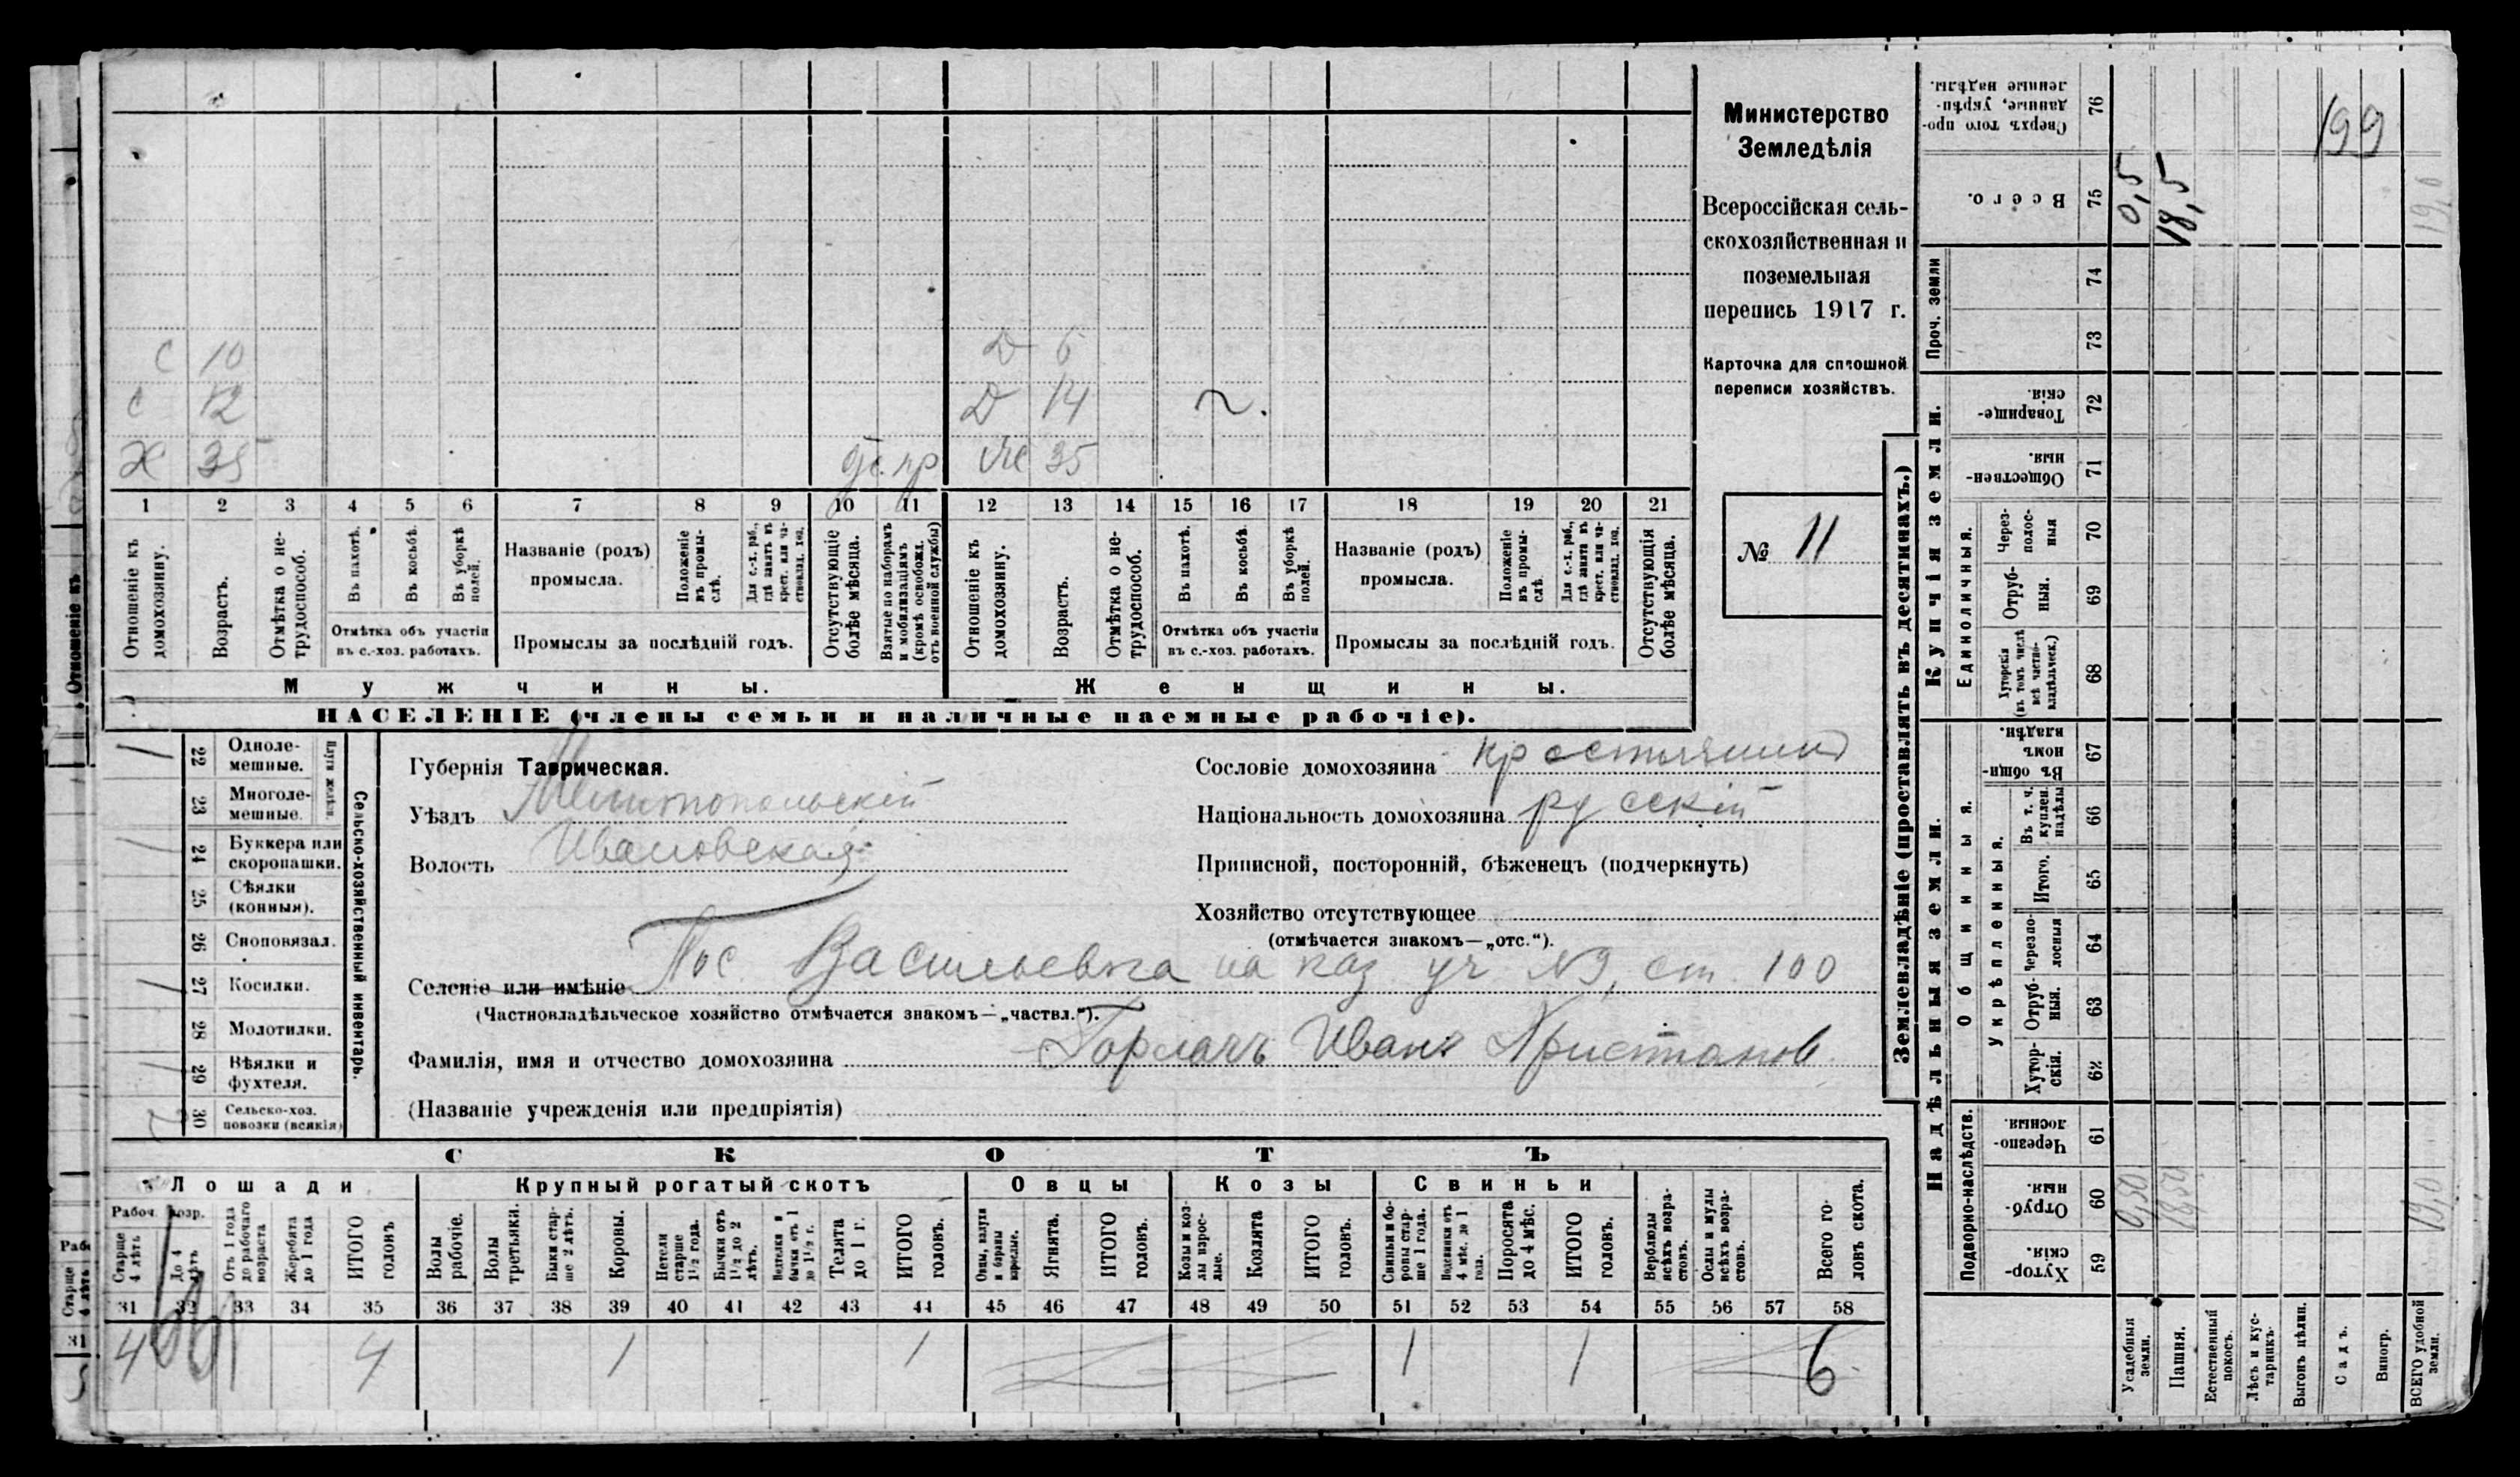 Министерство
Земледѣлія
Всероссійская сель-
скохозяйственная и
поземельная
перепись 1917 г.
Карточка для сплошной
переписи хозяйствъ.
№ 11
С 10 Д 6
С 12 Д 14
Х 35 Ж 35
1 2 3 4 5 6 7 8 9 10 11 12 13 14 15 16 17 18 19 20 21
Отношеніе къ домохозяину.
Возрастъ.
Отмѣтка о не-трудоспособ.
Въ пахотѣ.
Въ косьбѣ.
Въ уборкѣ полей.
Отмѣтка объ участіи въ с.-хоз. работахъ.
Названіе (родъ) промысла.
Положеніе въ промы-слѣ.
Для с.-х. раб., гдѣ занятъ въ крест. или ча-стновлад. хоз.
Промыслы за послѣдній годъ.
Отсутствующіе болѣе мѣсяца.
Взятые по наборамъ и мобилизаціямъ (кромѣ освобожд. отъ военной службы)
Отношеніе къ домохозяину.
Возрастъ.
Отмѣтка о не-трудоспособ.
Въ пахотѣ.
Въ косьбѣ.
Въ уборкѣ полей.
Отмѣтка объ участіи въ с.-хоз. работахъ.
Названіе (родъ) промысла.
Положеніе въ промы-слѣ.
Для с.-х. раб., гдѣ занята въ крест. или ча-стновлад. хоз.
Промыслы за послѣдній годъ.
Отсутствующія болѣе мѣсяца.
Мужчины. Женщины.
НАСЕЛЕНІЕ (члены семьи и наличные наемные рабочіе).
Сельско-хозяйственный инвентарь.
22 Одноле-мешные.
23 Многоле-мешные.
24 Буккера или скоропашки.
25 Сѣялки (конныя).
26 Сноповязал.
27 Косилки.
28 Молотилки.
29 Вѣялки и фухтеля.
30 Сельско-хоз. повозки (всякія)
Губернія Таврическая.
Уѣздъ Мелитопольскій
Волость Ивановская
Сословіе домохозяина крестьянинъ
Національность домохозяина русскій
Приписной, посторонній, бѣженецъ (подчеркнуть)
Хозяйство отсутствующее
(отмѣчается знакомъ—„отс.“).
Селеніе или имѣніе Пос. Васильевка на каз уч №9, ст. 100
(Частновладѣльческое хозяйство отмѣчается знакомъ—„частвл.“).
Фамилія, имя и отчество домохозяина Горлачъ Иванъ
(Названіе учрежденія или предпріятія)
СКОТЪ
Лошади Крупный рогатый скотъ Овцы Козы Свиньи
Рабоч. возр.
Старше 4 лѣтъ
До 4 лѣтъ
Отъ 1 года до рабочаго возраста
Жеребята до 1 года
ИТОГО головъ
Волы рабочіе.
Волы третьяки.
Быки стар-ше 2 лѣтъ.
Коровы.
Нетели старше 1½ года.
Бычки отъ 1½ до 2 лѣтъ.
Телки и бычки отъ 1 до 1½ г.
Телята до 1 г.
ИТОГО головъ.
Овцы, валухи и бараны взрослые.
Ягнята.
ИТОГО головъ.
Козы и коз-лы взрос-лые.
Козлята
ИТОГО головъ.
Свиньи и бо-ровы стар-ше 1 года.
Подсвинки отъ 4 мѣс. до 1 года.
Поросята до 4 мѣс.
ИТОГО головъ.
Верблюды всѣхъ возра-стовъ.
Ослы и мулы всѣхъ возра-стовъ.
Всего го-ловъ скота.
31 32 33 34 35 36 37 38 39 40 41 42 43 44 45 46 47 48 49 50 51 52 53 54 55 56 57 58
4 4 1 1 1 1 6
Землевладѣніе (проставлять въ десятинахъ.)
Надѣльныя земли. Купчія земли. Проч. земли
Подворно-наслѣдств.
Общинныя.
Укрѣпленныя.
Единоличныя.
Хутор-скія. 59
Отруб-ныя. 60
Черезпо-лосныя. 61
Хутор-скія. 62
Отруб-ныя. 63
Черезпо-лосныя 64
Итого. 65
Въ т. ч. куплен. надѣлы 66
Въ общин-номъ владѣн. 67
Хуторскія (въ томъ числѣ всѣ частно-владѣльческ.) 68
Отруб-ныя. 69
Через-полос-ныя 70
Обществен-ныя. 71
Товарище-скія. 72
73
74
Всего. 75
Сверхъ того про-данные, укрѣп-ленные надѣлы. 76
Усадебныя земли. 0,50 0,5
Пашня. 18,50 18,5
Естественный покосъ.
Лѣсъ и кус-тарникъ.
Выгонъ цѣлин.
Садъ.
Виногр.
ВСЕГО удобной земли. 19,0 19,0
199